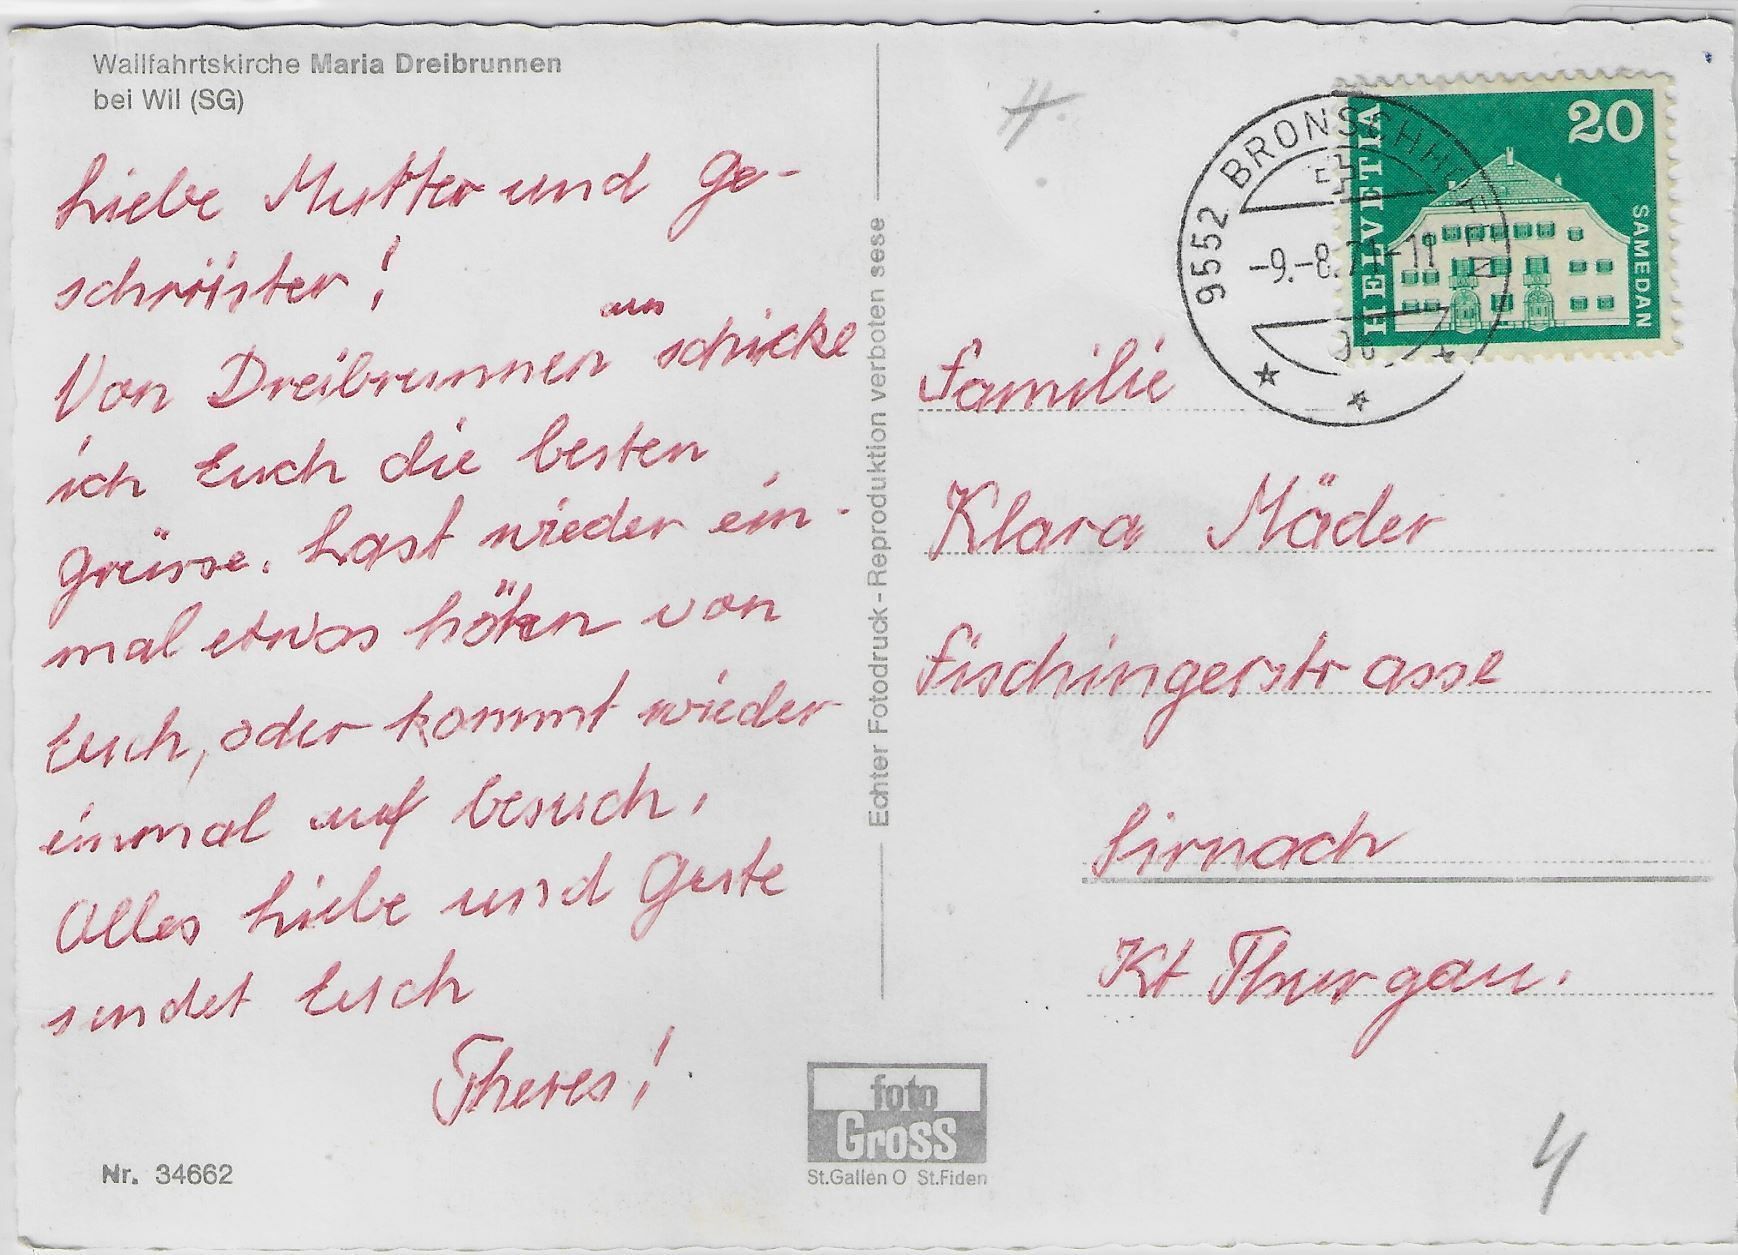 Wallfahrtskirche Maria Dreibrunnen
bei Wil (SG)
Liebe Mutter und Ge-
schwister!
Von Dreibrunnen aus schicke
ich Euch die besten
Grüsse. Last wieder ein-
mal etwas hören von
Euch, oder kommt wieder
einmal auf besuch,
Alles Liebe und Gute
sendet Euch
Theres!
Nr. 34662
Echter Fotodruck - Reproduktion verboten sese
foto
Gross
St.Gallen O St.Fiden
9552 BRONSCHHOFEN
-9.-8.71-11
HELVETIA
20
SAMEDAN
Familie
Klara Mäder
Fischingerstrasse
Sirnach
Kt Thurgau.
4